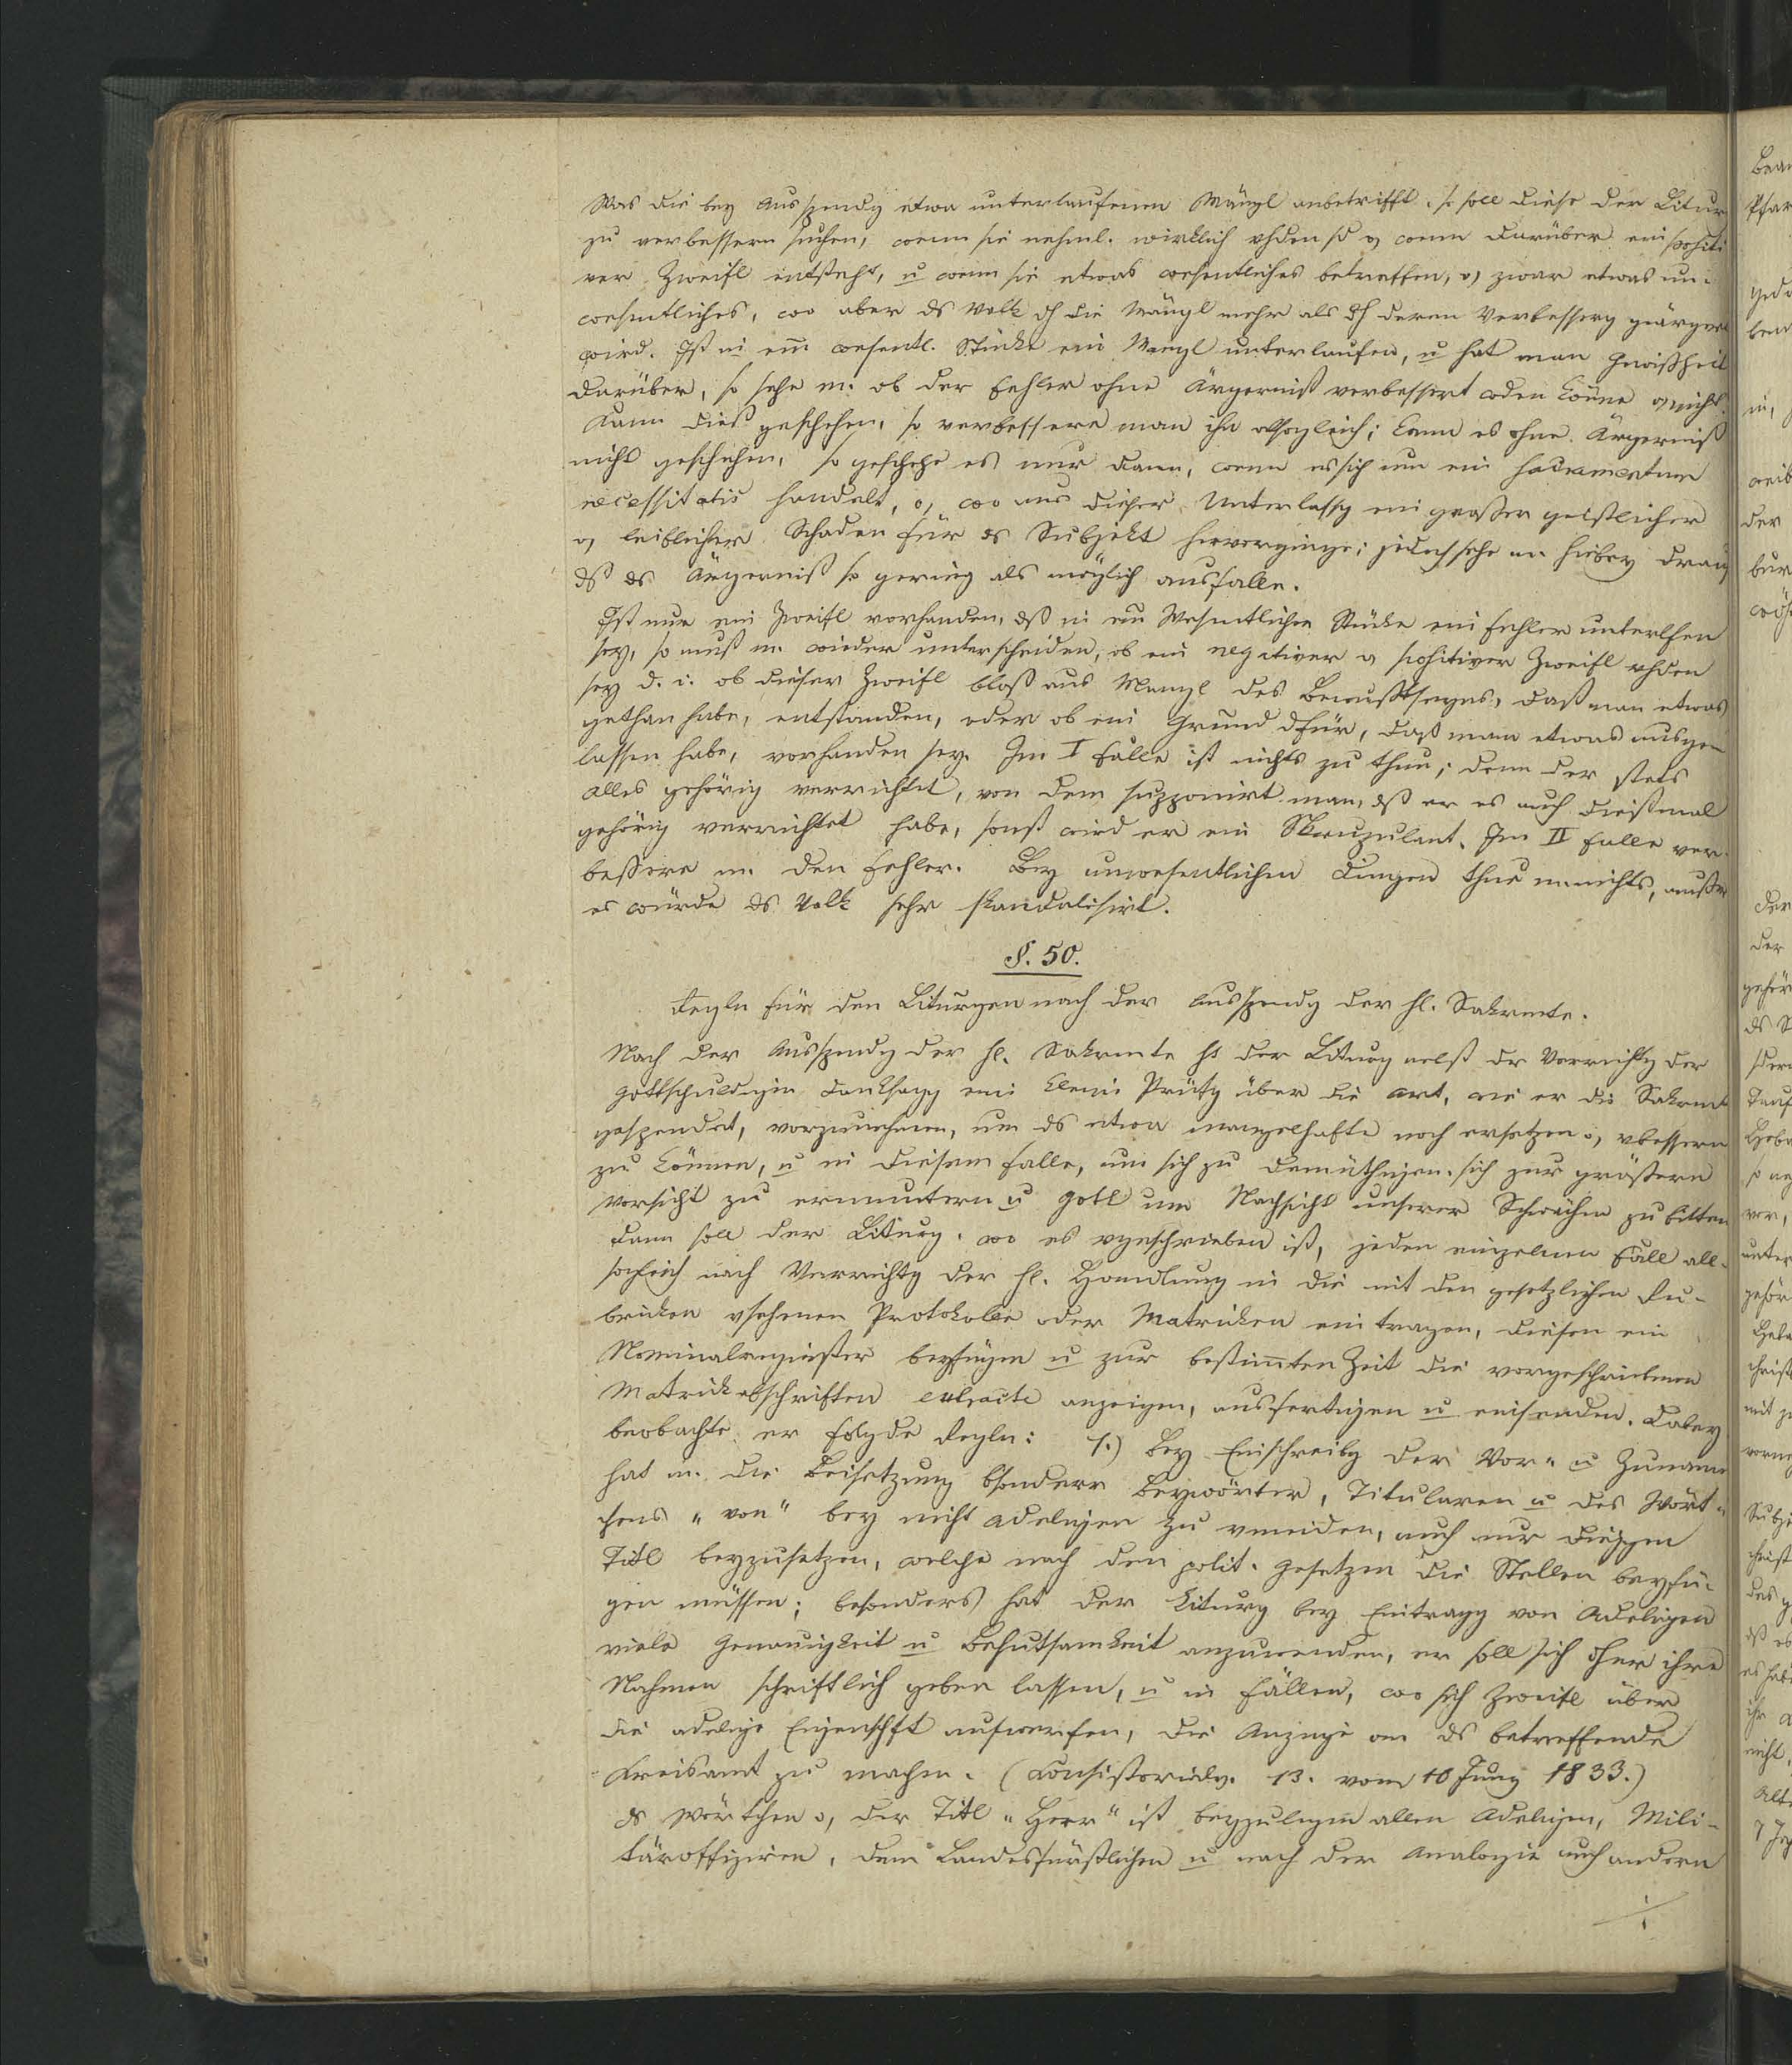 Was die bey Ausspendg etwa unterlaufenen Mängl anbetrifft, so soll diese der Liturg
zu verbessern suchen, wenn sie nehml. wirklich vhden sd o, wenn darüber ein positi
ver Zweifl entsteht, u wenn sie etwas wesentliches betreffen, o, zwar etwas un-
wesentliches, wo aber ds Volk dh die Mängl mehr als dh deren Verbesserg geärgert
wird. Ist in em wesentl. Stücke ein Mangl unterlaufen, u hat man Gewißheit
darüber, so sehe m. ob der Fehler ohne Ärgerniß verbessert wden könne o, nicht.
Kann dieß geschehen, so verbessere man ihn allsogleich; kann es ohne Ärgerniß
nicht geschehen, so geschehe es nur dann, wenn es sich um ein Sadramentum
necessitatis handelt, o, wo aus dieser Unterlassg ein großer geistlicher
o, leiblicher Schaden für ds Subjekt hervorginge; jedoch sehe m. hiebey drauf
dß ds Ärgerniß so gering als möglich ausfalle.
Ist nur ein Zweifl vorhanden, dß in en Wesentlichen Stücke ein Fehler unterlfen
sey, so muß m. wieder unterscheiden, ob ein negativer o, positiver Zweifl vhden
sey d. i. ob dieser Zweifl bloß aus Mangl des Bewußtseyns, daß man etwas
gethan habe, entstanden, oder ob ein Grund dfür, daß man etwas ausge
lassen habe, vorhanden sey. Im I Falle ist nichts zu thun; denn der stets
alles gehörig verrichtet, von dem supponirt man, dß er es auch dießmal
gehörig verrichtet habe, sonst wird er ein Skrupulant. Im II Falle ver-
bessere m. den Fehler. Bey unwesentlichen Dingen thue m. nichts, außer
es würde ds Volk sehr skandalisirt.
§. 50.
Regln für den Liturgen nach der Ausspendg der hl. Sakrmente.
Nach der Ausspendg der hl. Sakrmente ht der Liturg nebst dr Verrichtg der
Gottschuldigen Danksagg eine kleine Prüfg über die Art, wie er die Sakrmte
gespendet, vorzunehmen, um ds etwa mangelhafte noch ersetzen o, vbessern
zu können, u in diesem Falle, um sich zu demüthigen, sich zur größern
Vorsicht zu ermuntern u Gott um Nachsicht unserer Schwächen zu bitten
Dann soll der Liturg, wo es vgeschrieben ist, jeden einzelnen Fall all-
sogleich nach Verrichtg der hl. Handlung in die mit den gesetzlichen Ru-
briken vsehenen Protokolle oder Matriken eintragen, diesen ein
Nominalregister beyfügen u zur bestimten Zeit die vorgeschriebenen
Matrickabschriften extracte anzeigen, ausfertigen u einsenden. Dabey
beobachte er folgde Regln: 1.) Bey Einschreibg der Vor- u Zunamen
hat m. die Beisetzung bsonderer Beywörter, Titularen u des Wört-
chens „von" bey nicht Adeligen zu vmeiden, auch nur diejgen
Titl beyzusetzen, welche nach den polit. Gesetzen die Stellen beyfü-
gen müssen; besonders hat der Liturg bey Eintragg von Adeligen
viele Genauigkeit u Behutsamkeit anzuwenden, er soll sich dher ihre
Nahmen schriftlich geben lassen, u in Fällen, wo sich Zweifl über
die adelige Eigenschft aufwerfen, die Anzeige an ds betreffende
Kreisamt zu machen. (Konsistorialv. 13. vom 10 Juny 1833.)
ds Wörtchen o, der Titl „Herr" ist beyzulegen allen Adeligen, Mili-
täroffizieren, dem Landesfürstlichen u nach der Analogie auch andern